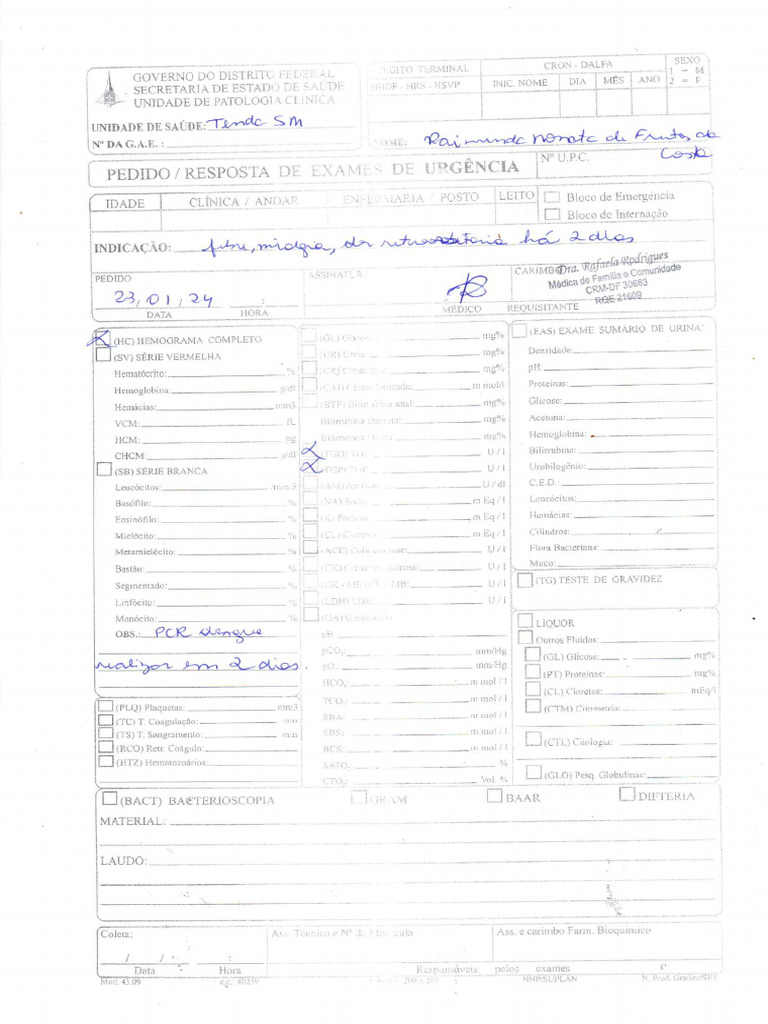 GOVERNO DO DISTRITO FEDERAL
SECRETARIA DE ESTADO DE SAÚDE
UNIDADE DE PATOLOGIA CLÍNICA
UNIDADE DE SAÚDE: Tenda SM
Nº DA G.A.E. :
TERMINAL
HBDF - HRS - HSVP
CRON - DALFA
INIC. NOME DIA MÊS ANO
SEXO
1 = M
2 = F
NOME: Raimunda Nonata de Frutos da Costa
PEDIDO / RESPOSTA DE EXAMES DE URGÊNCIA
Nº U.P.C.
IDADE
CLÍNICA / ANDAR
ENFERMARIA / POSTO
LEITO
Bloco de Emergência
Bloco de Internação
INDICAÇÃO: febre, mialgia, dor há 2 dias
PEDIDO
23, 01, 24 :
DATA HORA
MÉDICO REQUISITANTE
CARIMBO
Dra. Rafaela Rodrigues
Médica de Família e Comunidade
CRM-DF 30663
RQE 21609
X (HC) HEMOGRAMA COMPLETO
(SV) SÉRIE VERMELHA
Hematócrito: %
Hemoglobina: g/dl
Hemácias: mm3
VCM: fL
HCM: pg
CHCM: g/dl
(SB) SÉRIE BRANCA
Leucócitos: /mm 3
Basófilo: %
Eosinófilo: %
Mielócito: %
Metamielócito: %
Bastão: %
Segmentado: %
Linfócito: %
Monócito: %
OBS.: PCR dengue
realizar em 2 dias.
(PLQ) Plaquetas: mm3
(TC) T. Coagulação: min
(TS) T. Sangramento: min
(RCO) Retr. Coágulo:
(HTZ) Hematozoários:
(GL) Glicose: mg%
mg%
mg%
m mol/l
mg%
mg%
mg%
X (TGO) U / l
X (TGP) U / l
U / dl
m Eq / l
m Eq / l
m Eq / l
U / l
U / l
U / l
U / l
pH
pCO₂: mm/Hg
pO₂: mm/Hg
HCO₃: m mol / l
TCO₂: m mol / l
EBA: m mol / l
EBS: m mol / l
BCS: m mol / l
SATO₂ %
CTO₂ Vol. %
(EAS) EXAME SUMÁRIO DE URINA
Densidade:
pH:
Proteínas:
Glicose:
Acetona:
Hemoglobina:
Bilirrubina:
Urobilogênio:
C.E.D.:
Leucócitos:
Hemácias:
Cilindros:
Flora Bacteriana:
Muco:
(TG) TESTE DE GRAVIDEZ
LÍQUOR
Outros Fluidos:
(GL) Glicose: mg%
(PT) Proteínas: mg%
(CL) Cloretos: mEq/l
(CTM) Citometria:
(CTL) Citologia:
(GLO) Pesq. Globulinas:
(BACT) BACTERIOSCOPIA GRAM BAAR DIFTERIA
MATERIAL:
LAUDO:
Coleta:
/ / :
Data Hora
Ass. Técnico e Nº de Matrícula
Ass. e carimbo Farm. Bioquímico
Responsáveis pelos exames
Mod. 43.09
NNP/SUPLAN
N. Prod. Gráfica/SES